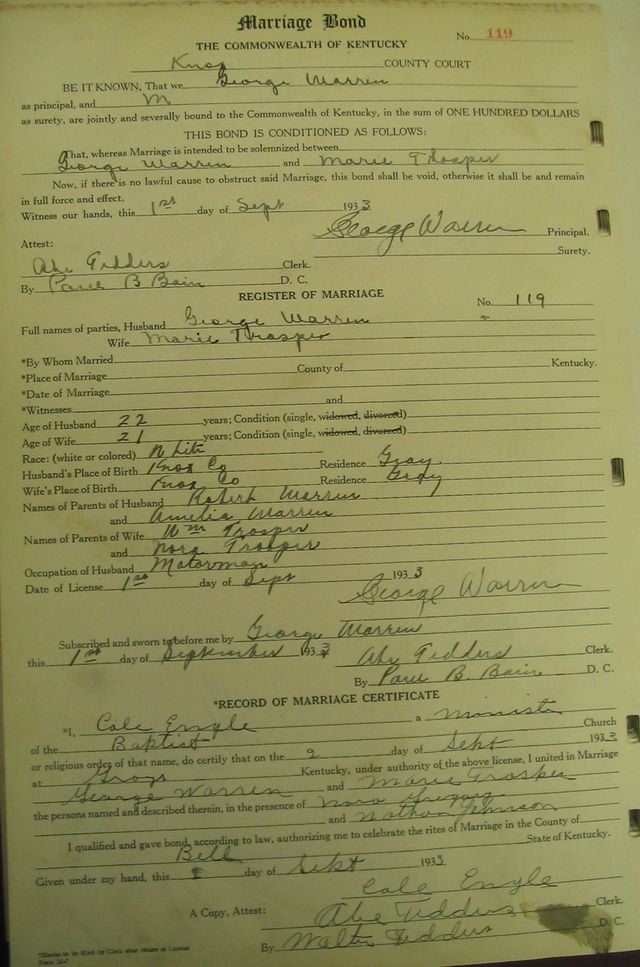 Marriage Bond
No. 119
THE COMMONWEALTH OF KENTUCKY
Knox COUNTY COURT
BE IT KNOWN, That we George Warren
as principal, and M
as surety, are jointly and severally bound to the Commonwealth of Kentucky, in the sum of ONE HUNDRED DOLLARS
THIS BOND IS CONDITIONED AS FOLLOWS:
That, whereas Marriage is intended to be solemnized between
George Warren and Marie Trosper
Now, if there is no lawful cause to obstruct said Marriage, this bond shall be void, otherwise it shall be and remain
in full force and effect.
Witness our hands, this 1st day of Sept 1933
George Warren Principal.
Attest: Surety.
Abe Tedders Clerk.
By Paul B Bain D. C.
REGISTER OF MARRIAGE
No. 119
Full names of parties, Husband George Warren
Wife Marie Trosper
*By Whom Married
*Place of Marriage County of Kentucky.
*Date of Marriage
*Witnesses and
Age of Husband 22 years; Condition (single, widowed, divorced)
Age of Wife 21 years; Condition (single, widowed, divorced)
Race: (white or colored) White
Husband's Place of Birth Knox Co Residence Gray
Wife's Place of Birth Knox Co Residence Gray
Names of Parents of Husband Robert Warren
and Amelia Warren
Names of Parents of Wife Wm Trosper
and Nora Trosper
Occupation of Husband Motorman
Date of License 1st day of Sept 1933
George Warren
Subscribed and sworn to before me by George Warren
this 1st day of September 1933 Abe Tedders Clerk.
By Paul B. Bain D. C.
*RECORD OF MARRIAGE CERTIFICATE
*I, Cole Engle a Minister
of the Baptist Church
or religious order of that name, do certify that on the 2 day of Sept 1933
at Grays Kentucky, under authority of the above license, I united in Marriage
George Warren and Marie Trosper
the persons named and described therein, in the presence of Nora Gregory
and Nathan Johnson
I qualified and gave bond, according to law, authorizing me to celebrate the rites of Marriage in the County of
Bell State of Kentucky.
Given under my hand, this day of Sept 1933
Cole Engle
A Copy, Attest: Abe Tedders Clerk.
By Walter Tedders D. C.
*Blanks to be filled by Clerk after return of License